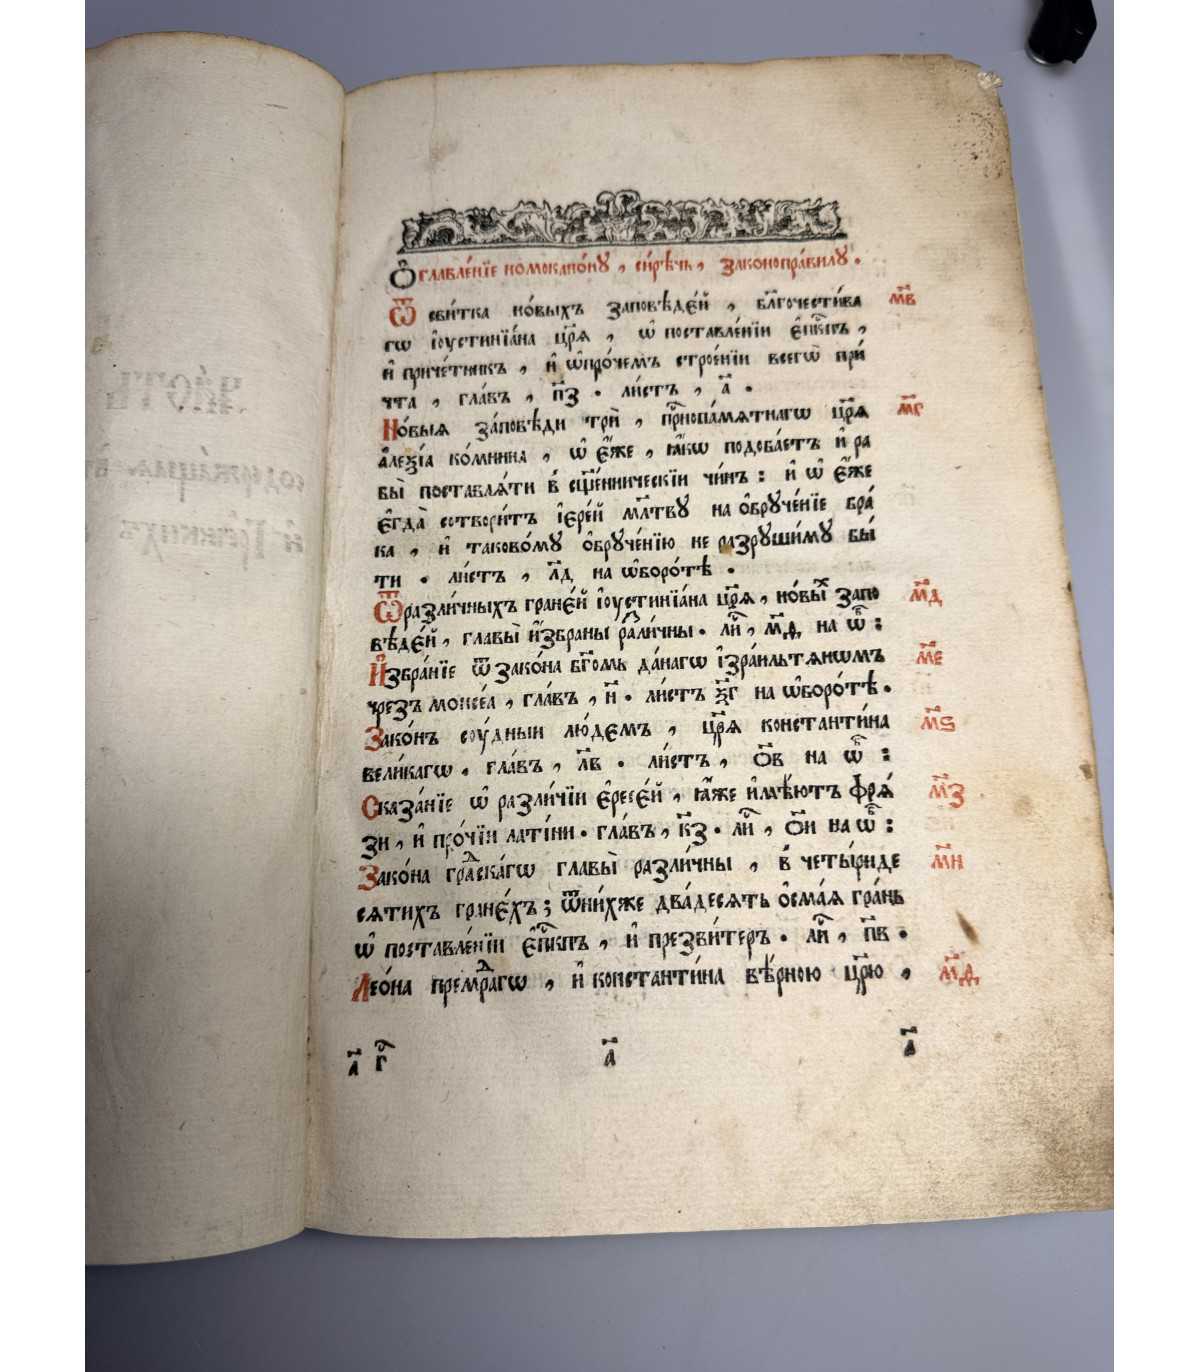 Ѻ҆главле́нїе номокано́нꙋ , си́рѣчь , законопра́вилꙋ .
Ѿ сви́тка но́выхъ за́повѣде́й , бл҃гочести́ва мв҃
гѡ і҆ꙋстинїа́на цр҃ѧ̀ , ѡ҆ поставле́нїи є҆пк҃пъ ,
и҆ при́че́тникъ , и҆ ѡ҆про́чемъ строе́нїи всегѡ̀ при́
чта , гла́въ , пз҃ . ли́стъ , а҃ .
Но́выѧ за́повѣди трѝ , прⷭ҇нопа́мѧтнагѡ цр҃ѧ̀ мг҃
а҆леѯі́а ко́мнина , ѡ҆ є҆́же , ꙗ҆́кѡ подоба́етъ и҆ ра
бы̀ поставлѧ́ти в̾ сщ҃е́нническїи чи́нъ : и҆ ѡ҆ є҆́же
є҆гда̀ сотвори́тъ і҆ере́й мл҃твꙋ на ѻ҆брꙋче́нїе бра́
ка , и҆ таково́мꙋ ѻ҆брꙋче́нїю не разрꙋши́мꙋ бы́
ти . ли́стъ , лд҃ на ѡ҆боро́тѣ .
Ѿразли́чныхъ гране́й і҆ꙋстинїа́на цр҃ѧ̀ , но́вы́ⷯ запо мд҃
вѣде́й , главы̀ и҆збраны ра́ⷥли́чны . лиⷭ҇ , мд҃ на ѡ҆ⷠ :
И҆збра́нїе ѿ зако́на бг҃омъ да́нагѡ і҆зра́ильтѧнѡмъ ме҃
чрезъ моѷсе́а , гла́въ , н҃ . ли́стъ ѯг҃ на ѡ҆боро́тѣ .
Зако́нъ сꙋ́дныи лю́демъ , цр҃ѧ̀ константи́на мѕ҃
вели́кагѡ , гла́въ , лв҃ . ли́стъ , ѻв҃ на ѡ҆ⷠ :
Сказа́нїе ѡ҆ разли́чїи є҆ресе́й , ꙗ҆́же и҆мѣ́ютъ фрѧ́ мз҃
зи , и҆ про́чїи лати́ни . гла́въ , кз҃ . лиⷭ҇ , ѻи҃ на ѡ҆ⷠ :
Зако́на гра́ⷣска́гѡ главы̀ разли́чны , в̾ четы́риде мн҃
сѧтихъ гране́хъ ; ѿни́хже два́десѧть ѻ҆сма́ѧ гра́нь
ѡ҆ поставле́нїи є҆пк҃пъ , и҆ презви́теръ . лиⷭ҇ , пв҃ .
Лео́на прему́ⷣрагѡ , и҆ константи́на вѣ́рною цр҃ю , мд҃
а҃ г҃ а҃ а҃